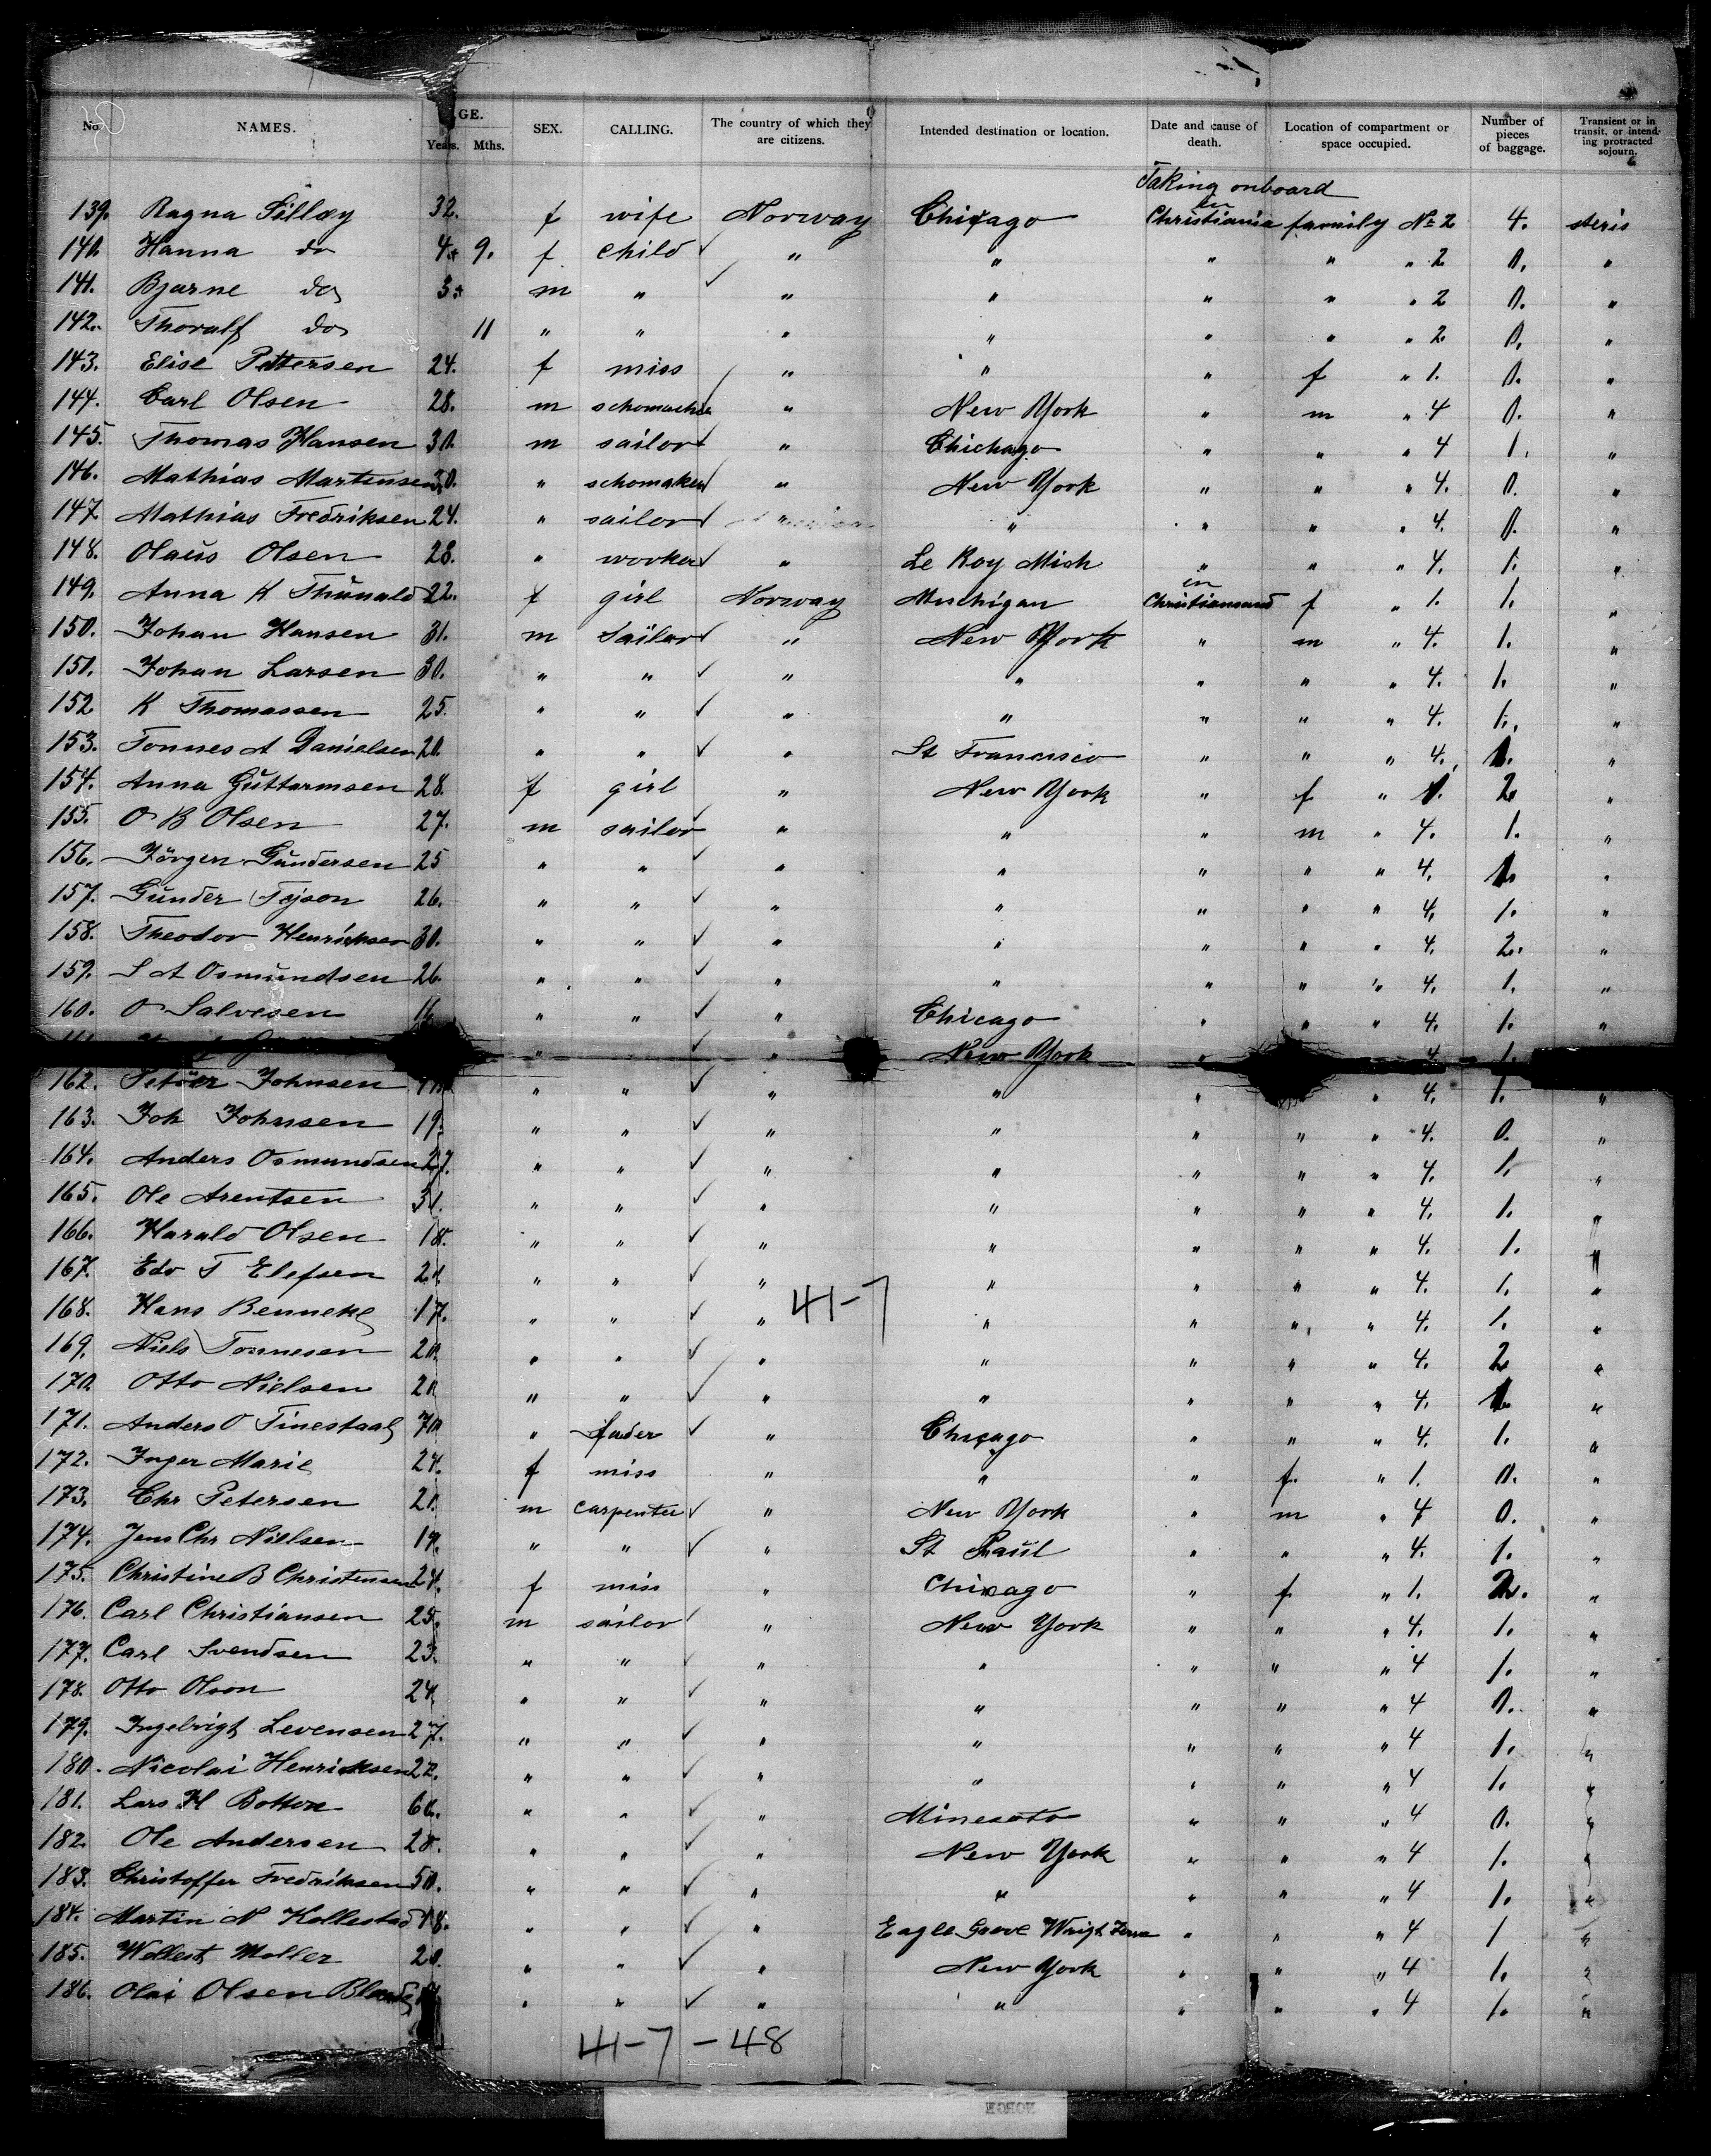 No. NAMES. AGE. Years. Mths. SEX. CALLING. The country of which they are citizens. Intended destination or location. Date and cause of death. Location of compartment or space occupied. Number of pieces of baggage. Transient or in transit, or intending protracted sojourn.
Taking onboard
139. Ragna 32. f wife Norway Chicago in Christiania family No 2 4. steris
140. Hanna do 4. 9. f. child " " " " " 2 0. "
141. Bjarne do 3. m " " " " " " 2 0. "
142. Thoralf do 11 " " " " " " " 2 0. "
143. Elise Pettersen 24. f miss " " " f " 1. 0. "
144. Carl Olsen 28. m " New York " m " 4 0. "
145. Thomas Hansen 30. m sailor " Chichago " " " 4 1. "
146. Mathias Martensen 30. " schomaker " New York " " " 4. 0. "
147 Mathias Fredriksen 24. " sailor " " " " " 4. 0. "
148. Olaus Olsen 28. " worker " Le Roy Mich " " " 4. 1. "
149. Anna K 22. f girl Norway Muchigan in Christiansand f " 1. 1. "
150. Johan Hansen 31. m Sailor " New York " m " 4. 1. "
151. Johan Larsen 30. " " " " " " " 4. 1. "
152 K Thomassen 25. " " " " " " " 4. 1. "
153. Tonnes A Danielsen 20. " " " St Francisco " " " 4. 1. "
154. Anna Guttormsen 28. f girl " New York " f " 1. 2 "
155. O B Olsen 27. m sailor " " " m " 4. 1. "
156. Jörgen Gundersen 25 " " " " " " " 4. 1. "
157. Gunder 26. " " " " " " " 4. 1. "
158. Theodor Henriksen 30. " " " " " " " 4. 2. "
159. S A Osmundsen 26. " " " " " " " 4. 1. "
160. O Salvesen " " " Chicago " " " 4. 1. "
" " New York " 4 1.
162. Johnsen " " " " " " " 4. 1. "
163. Joh Johnsen 19. " " " " " " " 4. 0. "
164. Anders Osmundsen 27. " " " " " " " 4. 1. "
165. Ole Arentsen 31. " " " " " " " 4. 1. "
166. Harald Olsen 18. " " " " " " " 4. 1. "
167. Edv T Elefsen " " " " " " " 4. 1. "
168. Hans Benneke 17. " " " 41-7 " " " " 4. 1. "
169. Niels Tonnesen 20. " " " " " " " 4. 2 "
170. Otto Nielsen " " " " " " " 4. 1. "
171. Anders O Tinestaal 70 " fader " Chicago " " " 4. 1. "
172. Inger Marie 24. f miss " " " f. " 1. 0. "
173. Chr Petersen m carpenter " New York " m " 4 0. "
174. Jens Chr Nielsen 19. " " " St Paul " " " 4. 1. "
175. Christine B Christensen 24. f miss " Chicago " f " 1. 2. "
176. Carl Christiansen 25. m sailor " New York " " " 4. 1. "
177. Carl Svendsen 23. " " " " " " " 4 1. "
178. Otto Olson 24. " " " " " " " 4 0. "
179. Ingebrigt Levensen 27. " " " " " " " 4 1. "
180. Nicolai Henriksen 22. " " " " " " " 4 1. "
181. Lars H Botton " " " Minesoto " " " 4 0. "
182. Ole Andersen 28. " " " New York " " " 4 1. "
183. Christoffer Fredriksen 50. " " " " " " " 4 1. "
184. Martin N Kallestad 18. " " " Eagle Grove Wrigt " " " 4 1 "
185. Moller 20. " " " New York " " " 4 1. "
186. Olai Olsen " " " " " " " 4 1. "
41-7-48